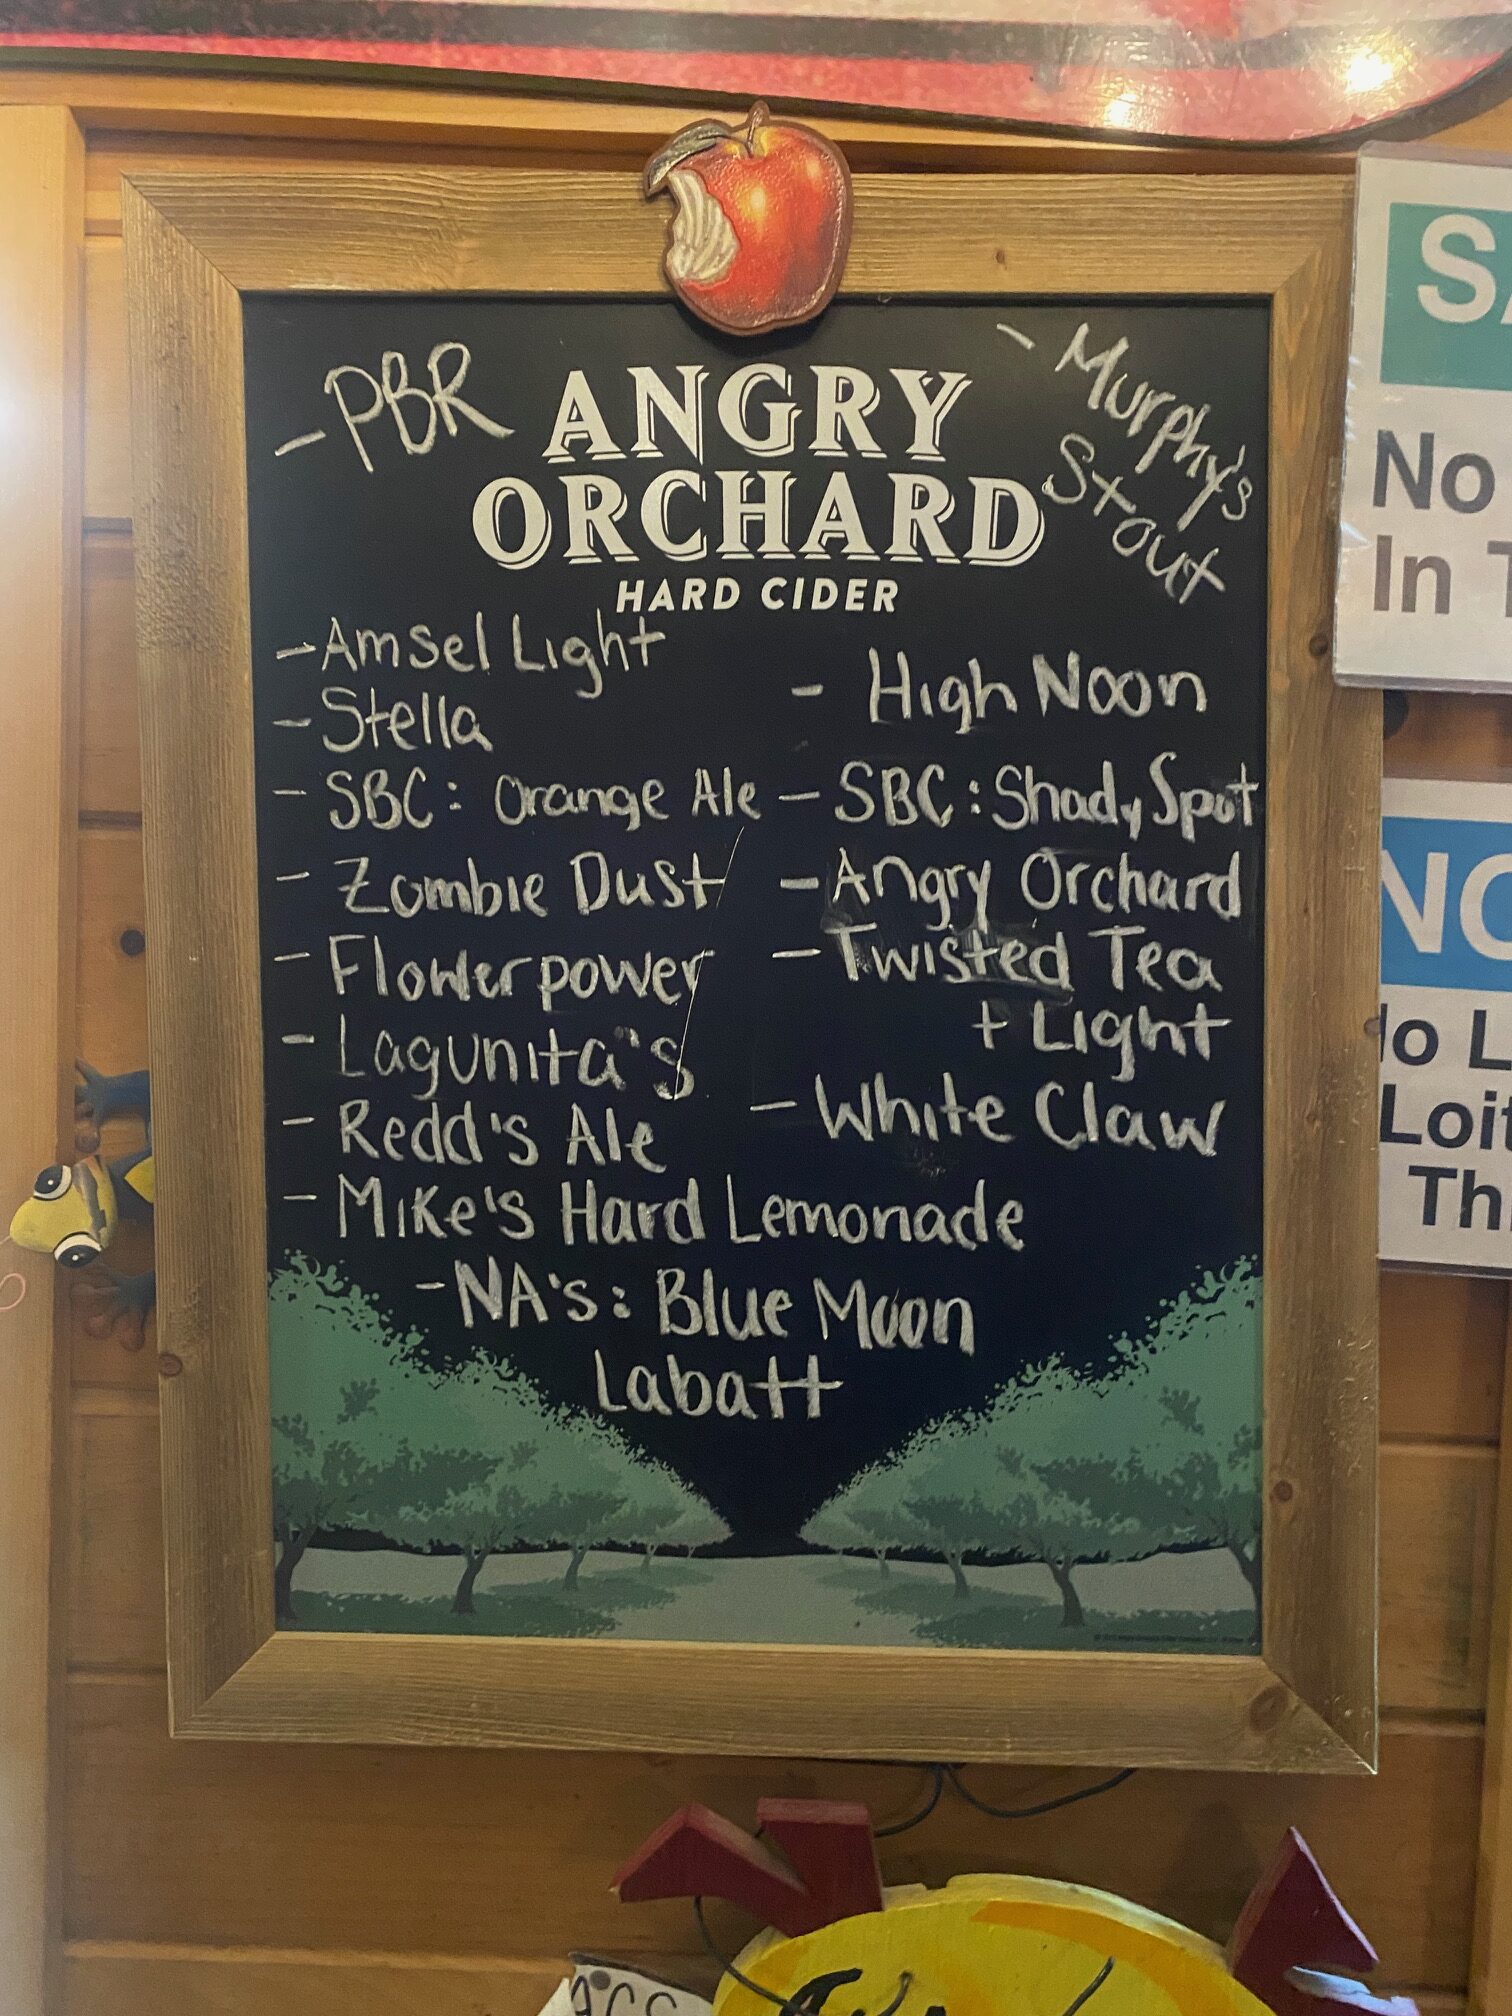 - PBR
ANGRY
ORCHARD
HARD CIDER
- Murphy's
Stout
- Amsel Light
- Stella
- SBC: Orange Ale
- Zombie Dust
- Flowerpower
- Lagunita's
- Redd's Ale
- Mike's Hard Lemonade
- High Noon
- SBC: Shady Spot
- Angry Orchard
- Twisted Tea
+ Light
- White Claw
- NA's: Blue Moon
Labatt
No
In T
NO
Loit
Th